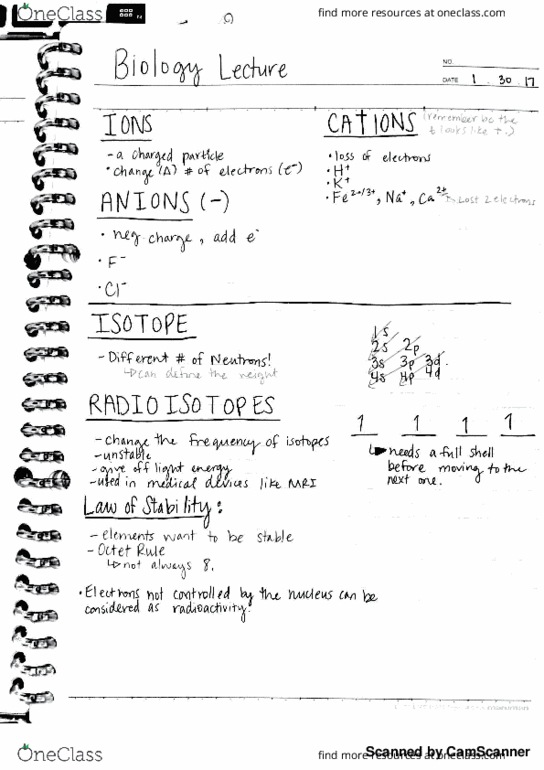 OneClass
find more resources at oneclass.com
Biology Lecture
NO.
DATE 1 . 30 . 17
IONS
- a charged particle
• change (Δ) # of electrons (e⁻)
CATIONS (remember bc the
t looks like +.)
• loss of electrons
• H⁺
• K⁺
• Fe²⁺/³⁺, Na⁺, Ca²⁺ ↳ Lost 2 electrons
ANIONS (-)
• neg charge, add e⁻
• F⁻
• Cl⁻
ISOTOPE
- Different # of Neutrons!
↳ can define the weight
1s
2s 2p
3s 3p 3d
4s 4p 4d
RADIOISOTOPES
- change the frequency of isotopes
- unstable
- give off light energy
- used in medical devices like MRI
1 1 1 1
↳ needs a full shell
before moving to the
next one.
Law of Stability:
- elements want to be stable
- Octet Rule
↳ not always 8.
• Electrons not controlled by the nucleus can be
considered as radioactivity.
OneClass
find more resources at oneclass.com
Scanned by CamScanner